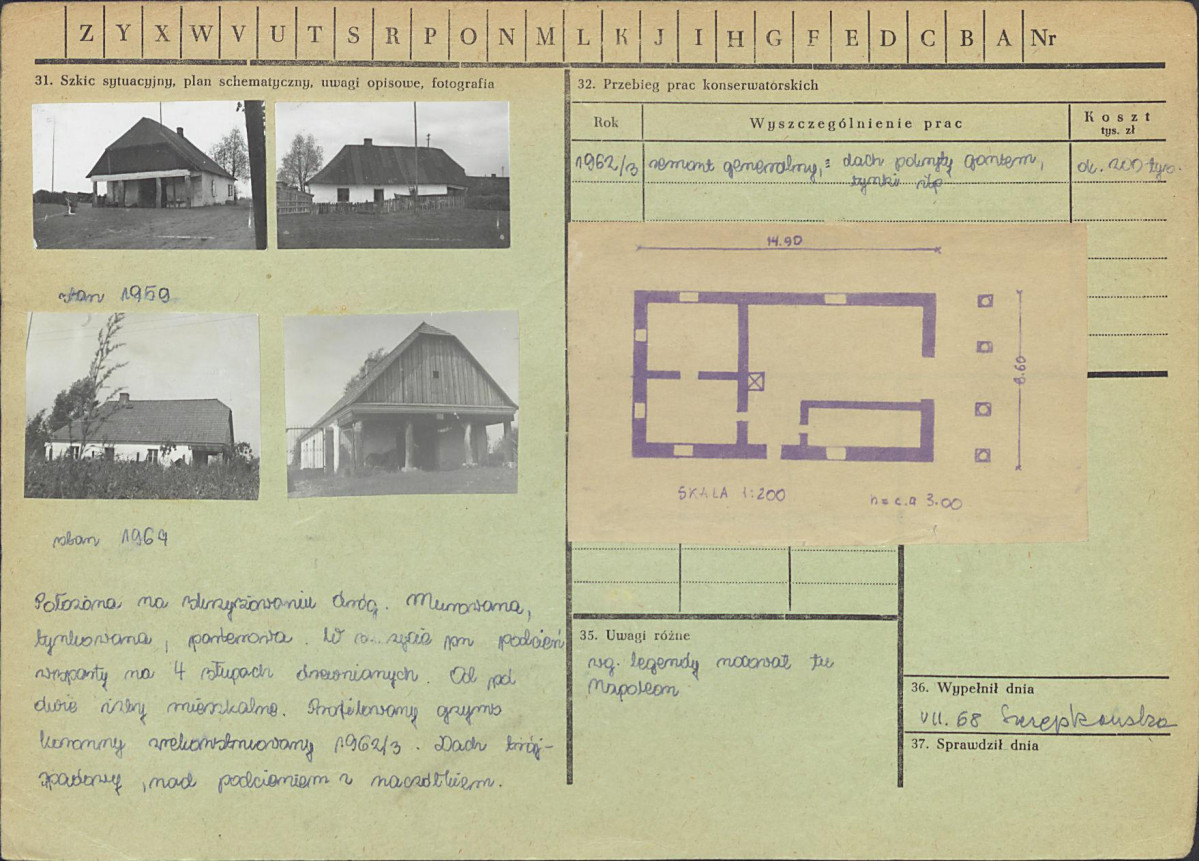 Z Y X W V U T S R P O N M L K J I H G F E D C B A Nr
31. Szkic sytuacyjny, plan schematyczny, uwagi opisowe, fotografia
stan 1959
stan 1964
Położona na skrzyżowaniu dróg. Murowana,
tynkowana, parterowa. W pn podcień
wsparty na 4 słupach drewnianych. Od pd
dwie izby mieszkalne. Profilowany gzyms
koronny zrekonstruowany 1962/3. Dach trój-
spadowy, nad podcieniem z naczółkiem.
32. Przebieg prac konserwatorskich
Rok Wyszczególnienie prac Koszt
tys. zł
1962/3 remont generalny, : dach pokryty gontem, ok. 200 tys.
tynki itp
14.90
8.60
SKALA 1:200 h = c.a 3.00
35. Uwagi różne
wg. legendy nocował tu
Napoleon
36. Wypełnił dnia
VII. 68
37. Sprawdził dnia